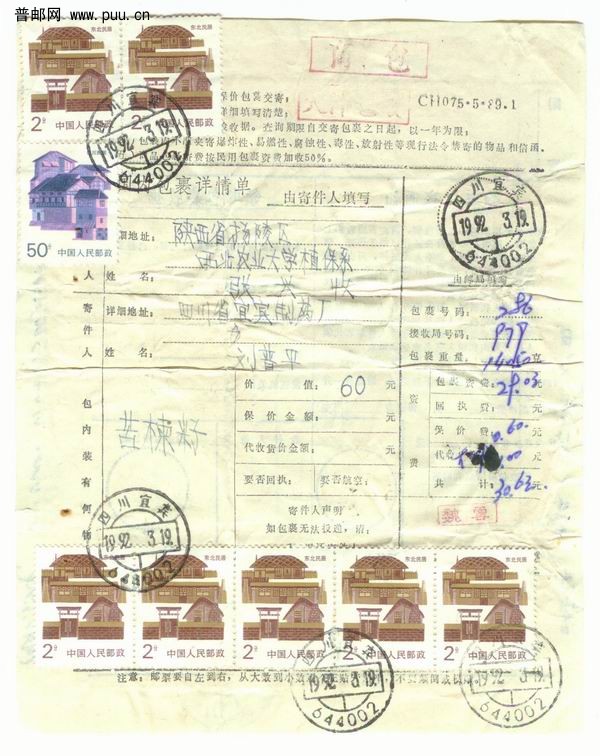 普邮网 www.puu.cn
东北民居
东北民居
2分 中国人民邮政
2分 中国人民邮政
商包
CH075·5·89.1
保价包裹交寄;
详细填写清楚;
收据。查询期限自交寄包裹之日起,以一年为限;
夹寄爆炸性、易燃性、腐蚀性、毒性、放射性等现行法令禁寄的物品和信函。
资费按民用包裹资费加收50%。
四川宜宾
1992 3.19.
1
644002
50分 中国人民邮政
包裹详情单
由寄件人填写
四川宜宾
1992 3.19.
1
644002
详细地址:陕西省杨陵区
西北农业大学植保系
人 姓名:张兴
寄件人
详细地址:四川省宜宾制药厂
姓名:刘普平
由邮局填写
包裹号码:286
接收局号码:
包裹重量: 克
资费
包裹资费:29.03元
回执费: 元
保价费:0.60元
代收 1.00元
共计:30.63元
价值:60元
保价金额: 元
代收货价金额: 元
要否回执: 要否航空:
包内装有何物
苦楝籽
寄件人声明
如包裹无法投递,请:
魏蓉
四川宜宾
1992 3.19.
1
644002
东北民居
东北民居
东北民居
东北民居
东北民居
2分 中国人民邮政
2分 中国人民邮政
2分 中国人民邮政
2分 中国人民邮政
2分 中国人民邮政
四川宜宾
1992 3.19.
1
644002
四川宜宾
1992 3.19.
1
644002
注意:邮票要自左到右,从大数到小数